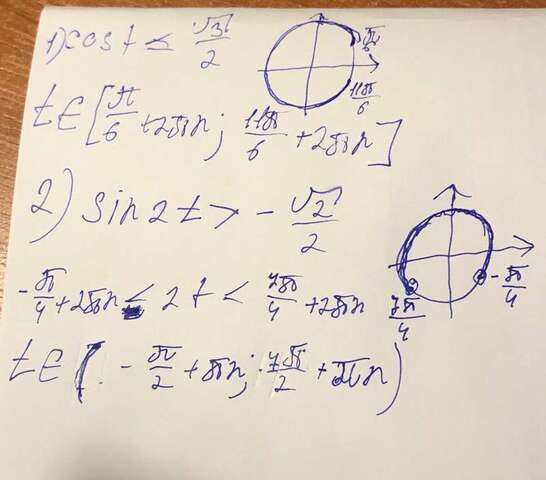 1) cos t ≤ √3/2
π/6
11π/6
t ∈ [π/6 + 2πn; 11π/6 + 2πn]
2) sin 2t > - √2/2
-π/4 + 2πn < 2t < 7π/4 + 2πn
7π/4
-π/4
t ∈ (-π/2 + πn; 7π/2 + πn)